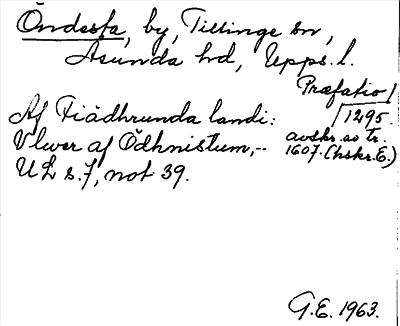 Öndesta, by, Tillinge sn,
Åsunda hd, Upps. l.
Præfatio/
Af Fiädhrunda landi: /1295.
Vlwer af Ödhnistum,-- avskr. av tr.
UL s.7, not 39. 1607. (hskr. E.)
G.E. 1963.